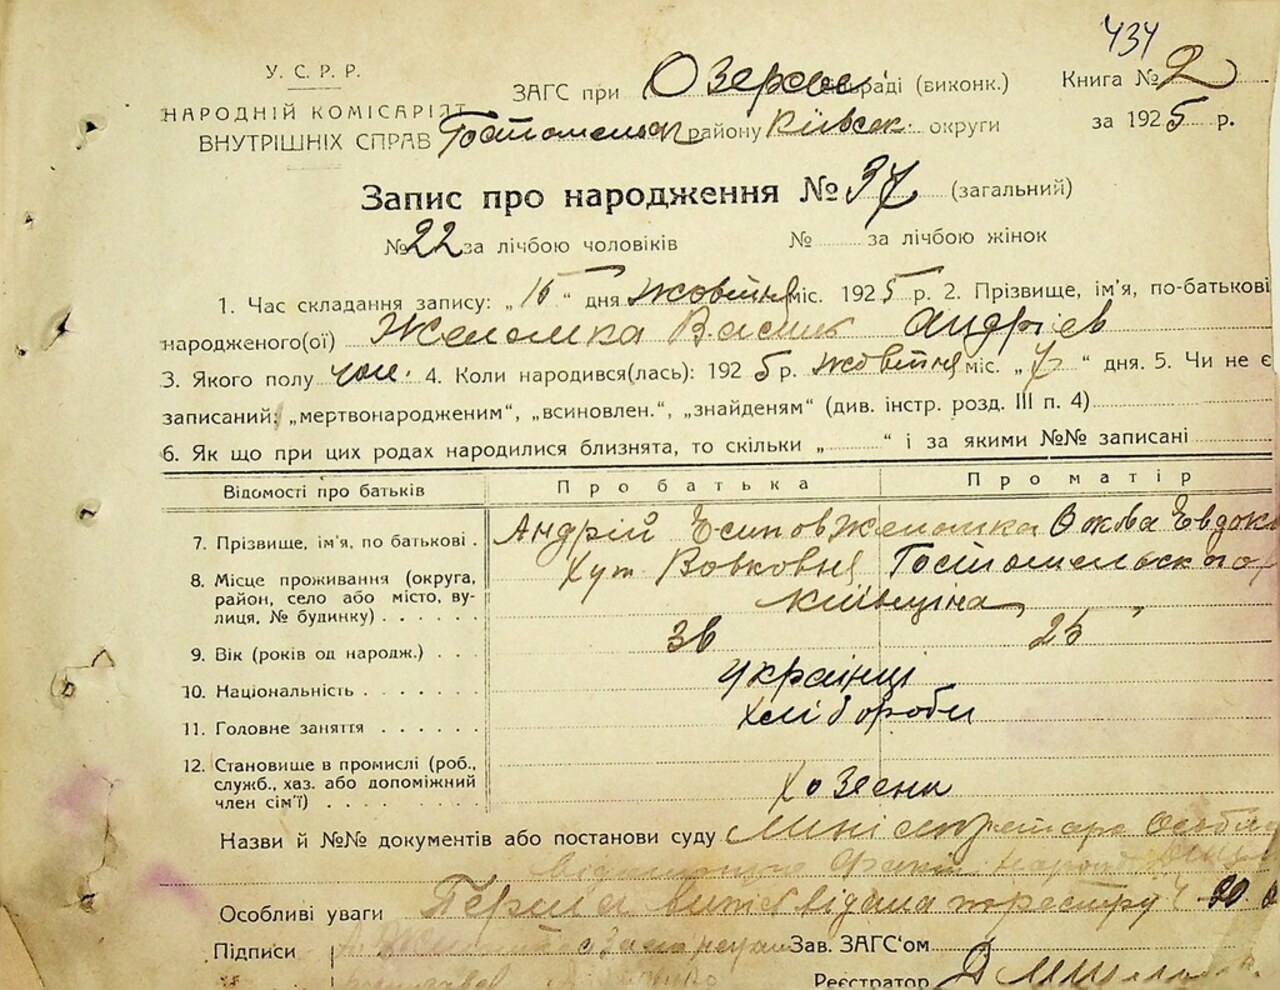 434
У. С. Р. Р.
НАРОДНІЙ КОМІСАРІЯТ
ВНУТРІШНІХ СПРАВ
ЗАГС при Озерськ раді (виконк.)
Книга № 2
Гостомельск району Київськ. округи
за 1925 р.
Запис про народження № 37 (загальний)
№ 22 за лічбою чоловіків № за лічбою жінок
1. Час складання запису: „ 15 “ дня жовтня міс. 1925 р. 2. Прізвище, ім'я, по-батькові
народженого(ої) Желомка Василь Андріев
3. Якого полу чол. 4. Коли народився(лась): 1925 р. жовтня міс. „ 7 “ дня. 5. Чи не є
записаний: „мертвонародженим“, „всиновлен.“, „знайденям“ (див. інстр. розд. III п. 4)
6. Як що при цих родах народилися близнята, то скільки „ “ і за якими №№ записані
Відомості про батьків Про батька Про матір
7. Прізвище, ім'я, по батькові . Андрій Есипов Желомка Евдок
8. Місце проживання (округа, Хут Вовковня Гостомельского р
район, село або місто, ву-
лиця, № будинку) . . . . . . Київщина
9. Вік (років од народж.) . . . 25
10. Національність . . . . . . . українці
11. Головне заняття . . . . . . Хлібороби
12. Становище в промислі (роб.,
служб., хаз. або допоміжний
член сім'ї) . . . . . . . . Хозяени
Назви й №№ документів або постанови суду
Особливі уваги Перша випісь видана по реєстру
Підписи Зав. ЗАГС'ом
Реєстратор